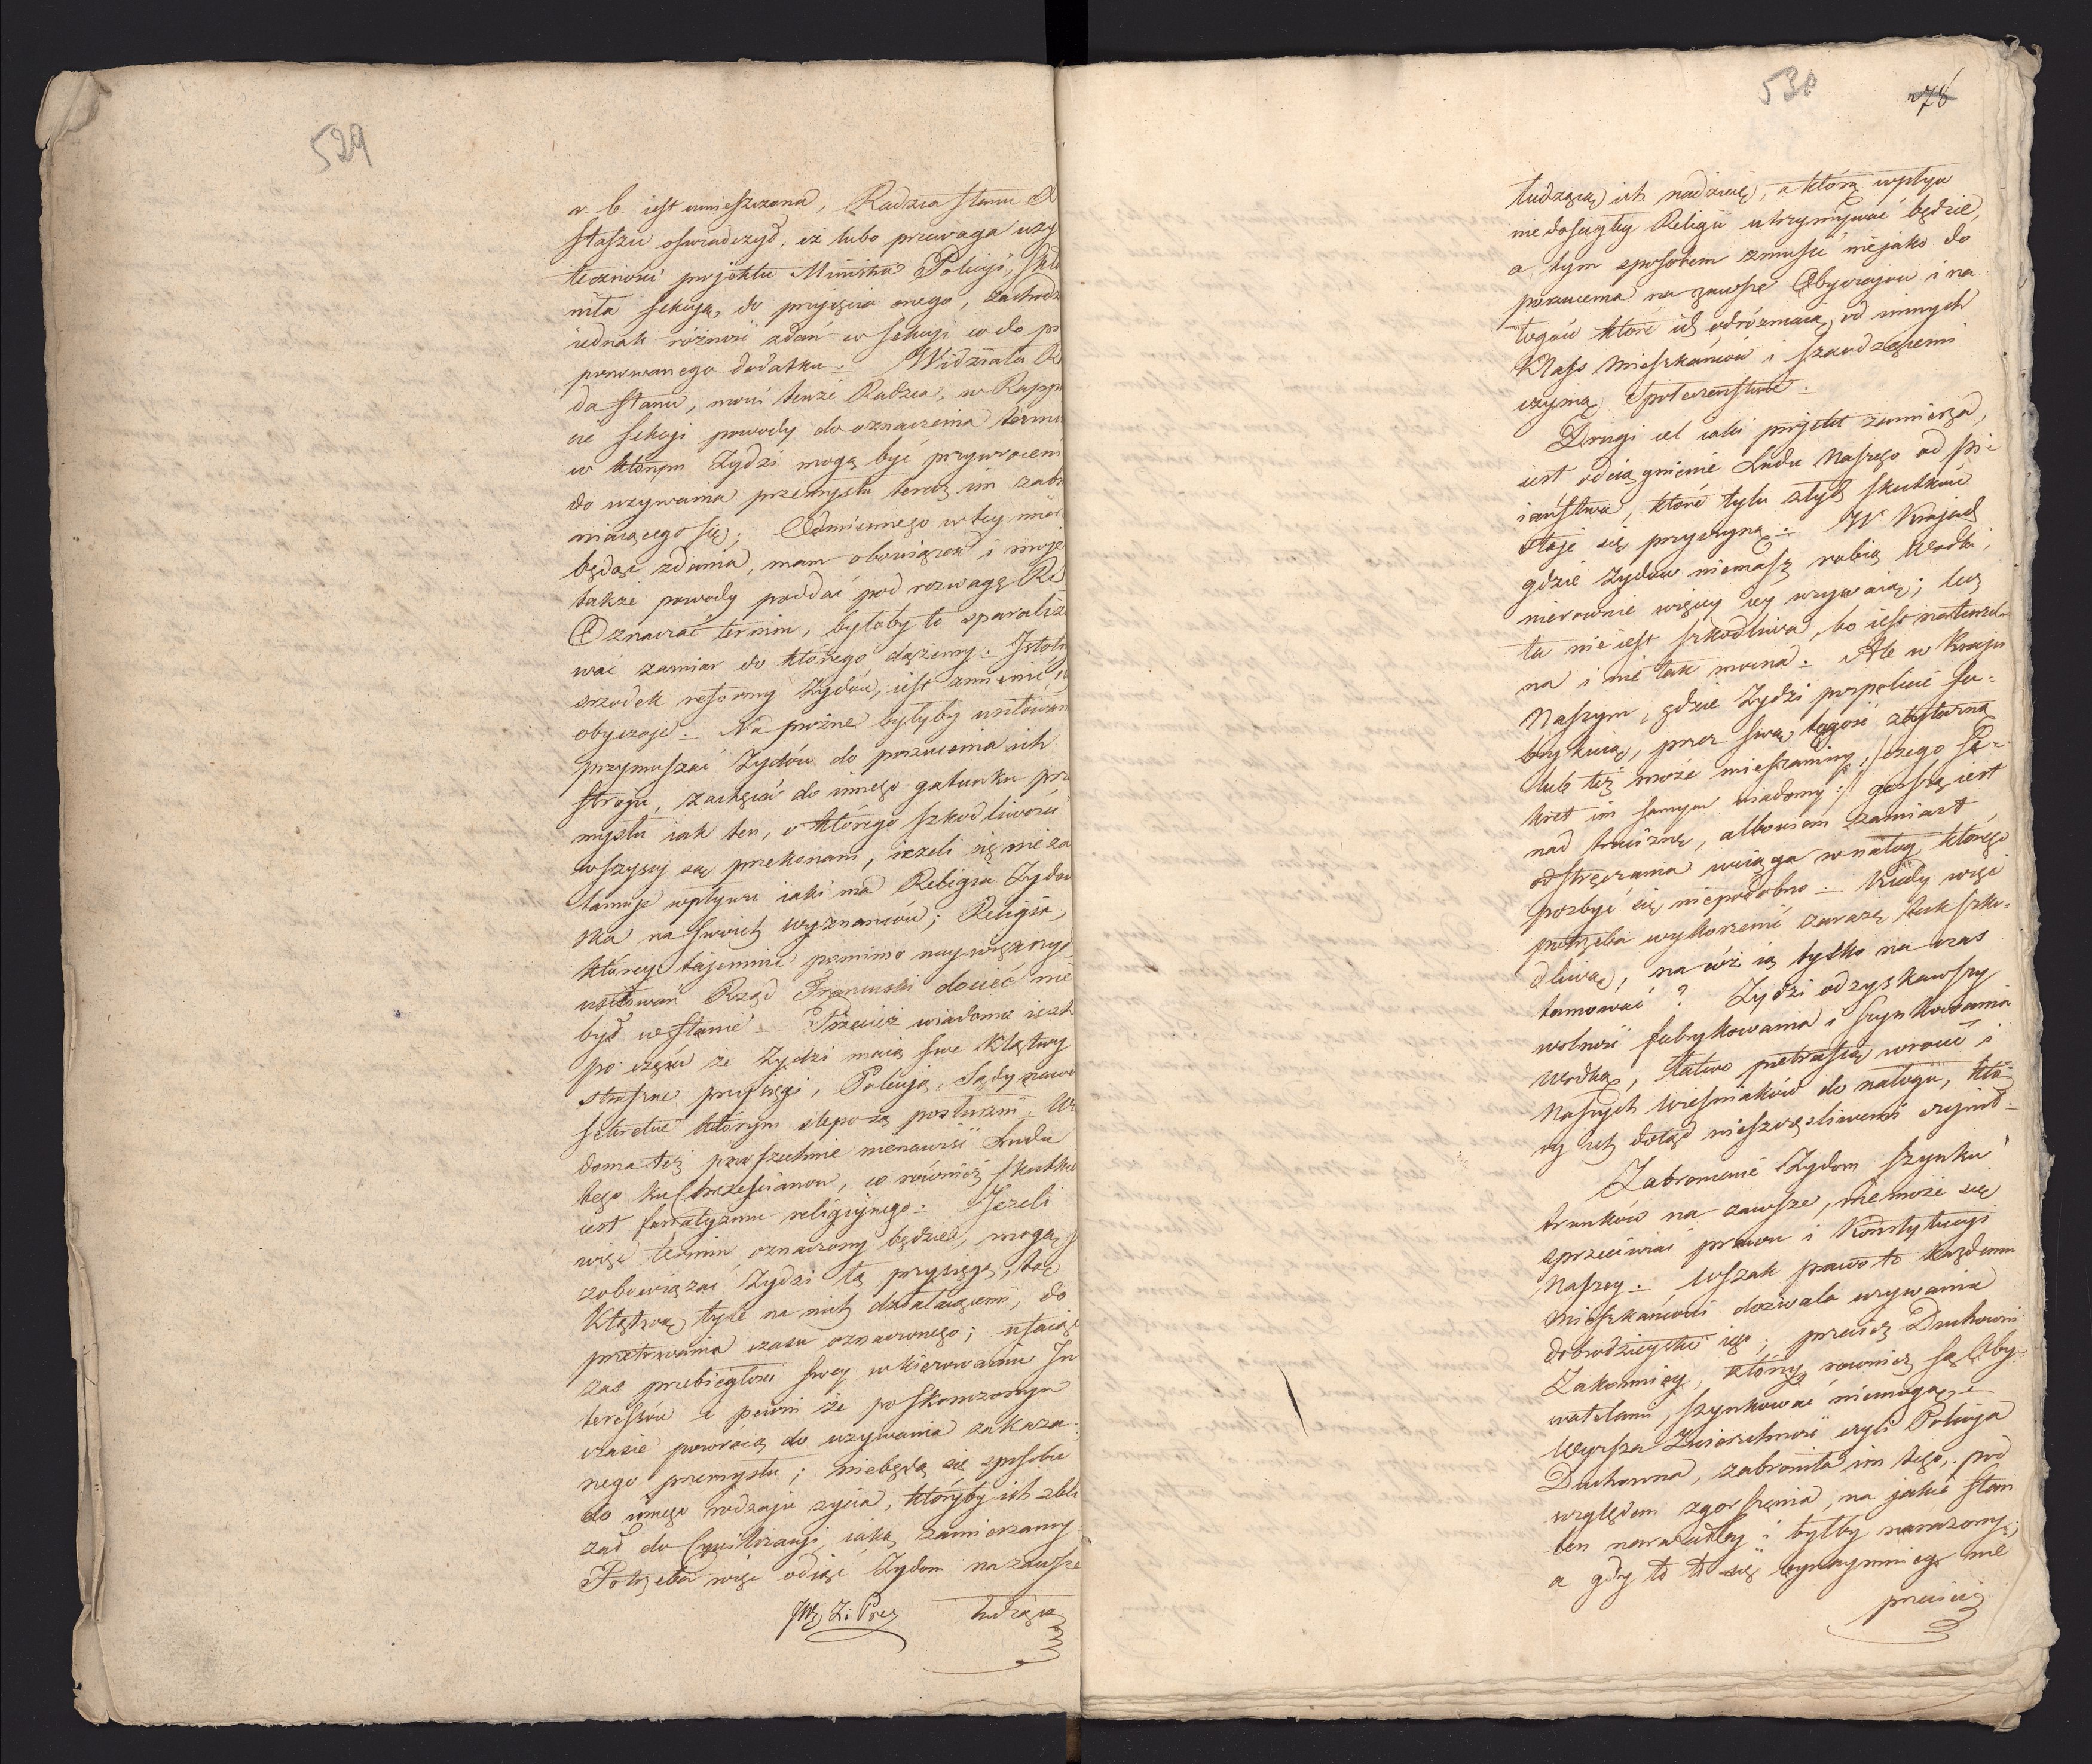 529
a. b. iest umieszczona, Radzca Stanu
Staszic oswiadczył, iż lubo przewaga uży
teczności projektu Ministra Policyi, skło
niła Sekcyą do przyjęcia onego, zachodzi
iednak różność zdań w Sekcyi co do pro
ponowanego dodatku. Widziała Ra
da Stanu, mówi tenże Radzca, w Rappor
cie Sekcyi powody do oznaczenia termi
w którym Żydzi mogą być przywróceni
do używania przemysłu teraz im zabra
niaiącego się; Odmiennego w tey mierze
będąc zdania, mam obowiązek i moje
także powody poddać pod rozwagę Ra
Oznaczać termin, byłoby to sparaliżo
wać zamiar do którego dążemy. Istotny
srzodek reformy Żydów, iest zmienić ich
obyczaje. Na próżne byłyby usiłowania
przymuszać Żydów do porzucenia ich
stroju, zachęcać do innego gatunku prze
mysłu iak ten, o którego szkodliwości
wszyscy są przekonani, ieżeli się nie za
tamuje wpływu iaki ma Religia Żydow
ska na swoich wyznawców; Religia,
którey tajemnic pomimo naywiększych
usiłowań Rząd Francuski dociec nie
był w stanie. Przecież wiadomo iest
po części że Żydzi maią swe Klątwy
straszne przysięgi, Policyą, Sądy nawet
sekretne którym ślepo są posłuszni. Wia
doma też powszechnie nienawiść Ludu
tego ku Chrześcianom, co również skutkiem
iest fanatyzmu religijnego. Jeżeli
więc termin oznaczony będzie, mogą się
zobowiązać Żydzi tą przysięgą, tą
Klątwą tyle na nich działaiącemi, do
przetrwania czasu oznaczonego; ufaiąc
zas przebiegłości swey w kierowaniu In
teressów i pewni że po skończonym
czasie powrócą do używania zakaza-
nego przemysłu; niebędą się sposobić
do innego rodzaju życia, któryby ich zbli
żał do Cywilizacyi, iaką zamierzamy
Potrzeba więc odiąć Żydom na zawsze
łudzącą
530
78
łudzącą ich nadzieię, a którą wpływ
niedościgłey Religii utrzymywać będzie,
a tym sposobem zmusić niejako do
porzucenia na zawsze Obyczajów i na
łogów które ich odróżniaią od innych
Klass Mieszkańców i szkodzącemi
czynią Społeczeństwu.
Drugi cel iaki projekt zamierza,
iest odciągnienie Ludu Naszego od pi-
iaństwa, które tylu złych skutków
staje się przyczyną. W Krajach
gdzie Żydów niemasz robią Wódki,
nierównie więcey iey używaią; lecz
ta nie iest szkodliwa, bo iest natural-
na i nie tak mocna. Ale w Kraju
Naszym, gdzie Żydzi pospolicie fa-
brykuią, przez swą tęgość zbyteczną
lub też może mieszaniny, /: czego se-
kret im samym wiadomy :/ gorszą iest
nad truciznę, albowiem zamiast
odstręczenia wciąga w nałóg którego
pozbyć się niepodobno. Kiedy więc
potrzeba wykorzenić zarazę tak szko-
dliwą, na cóż ią tylko na czas
tamować? Żydzi odzyskawszy
wolność fabrykowania i szynkowania
Wódką, łatwo potrafią wrócić i
Naszych Wieśniaków do nałogu, któ-
ry ich dotąd nieszczęśliwemi czynił.
Zabronienie Żydom szynku
trunków na zawsze, niemoże się
sprzeciwiać prawu i Konstytucyi
Naszey. Wszak prawo to każdemu
Mieszkańcowi dozwala używania
dobrodzieystw iego; przecież Duchowni
Zakonnicy, którzy również są Oby-
watelami, szynkować niemogą,
Wyższa Zwierzchność czyli Policya
Duchowna, zabroniła im tego, pod
względem zgorszenia, na jakie stan
ten naraziłby i byłby narażony;
a gdy to to się bynaymniey nie
przeciwi